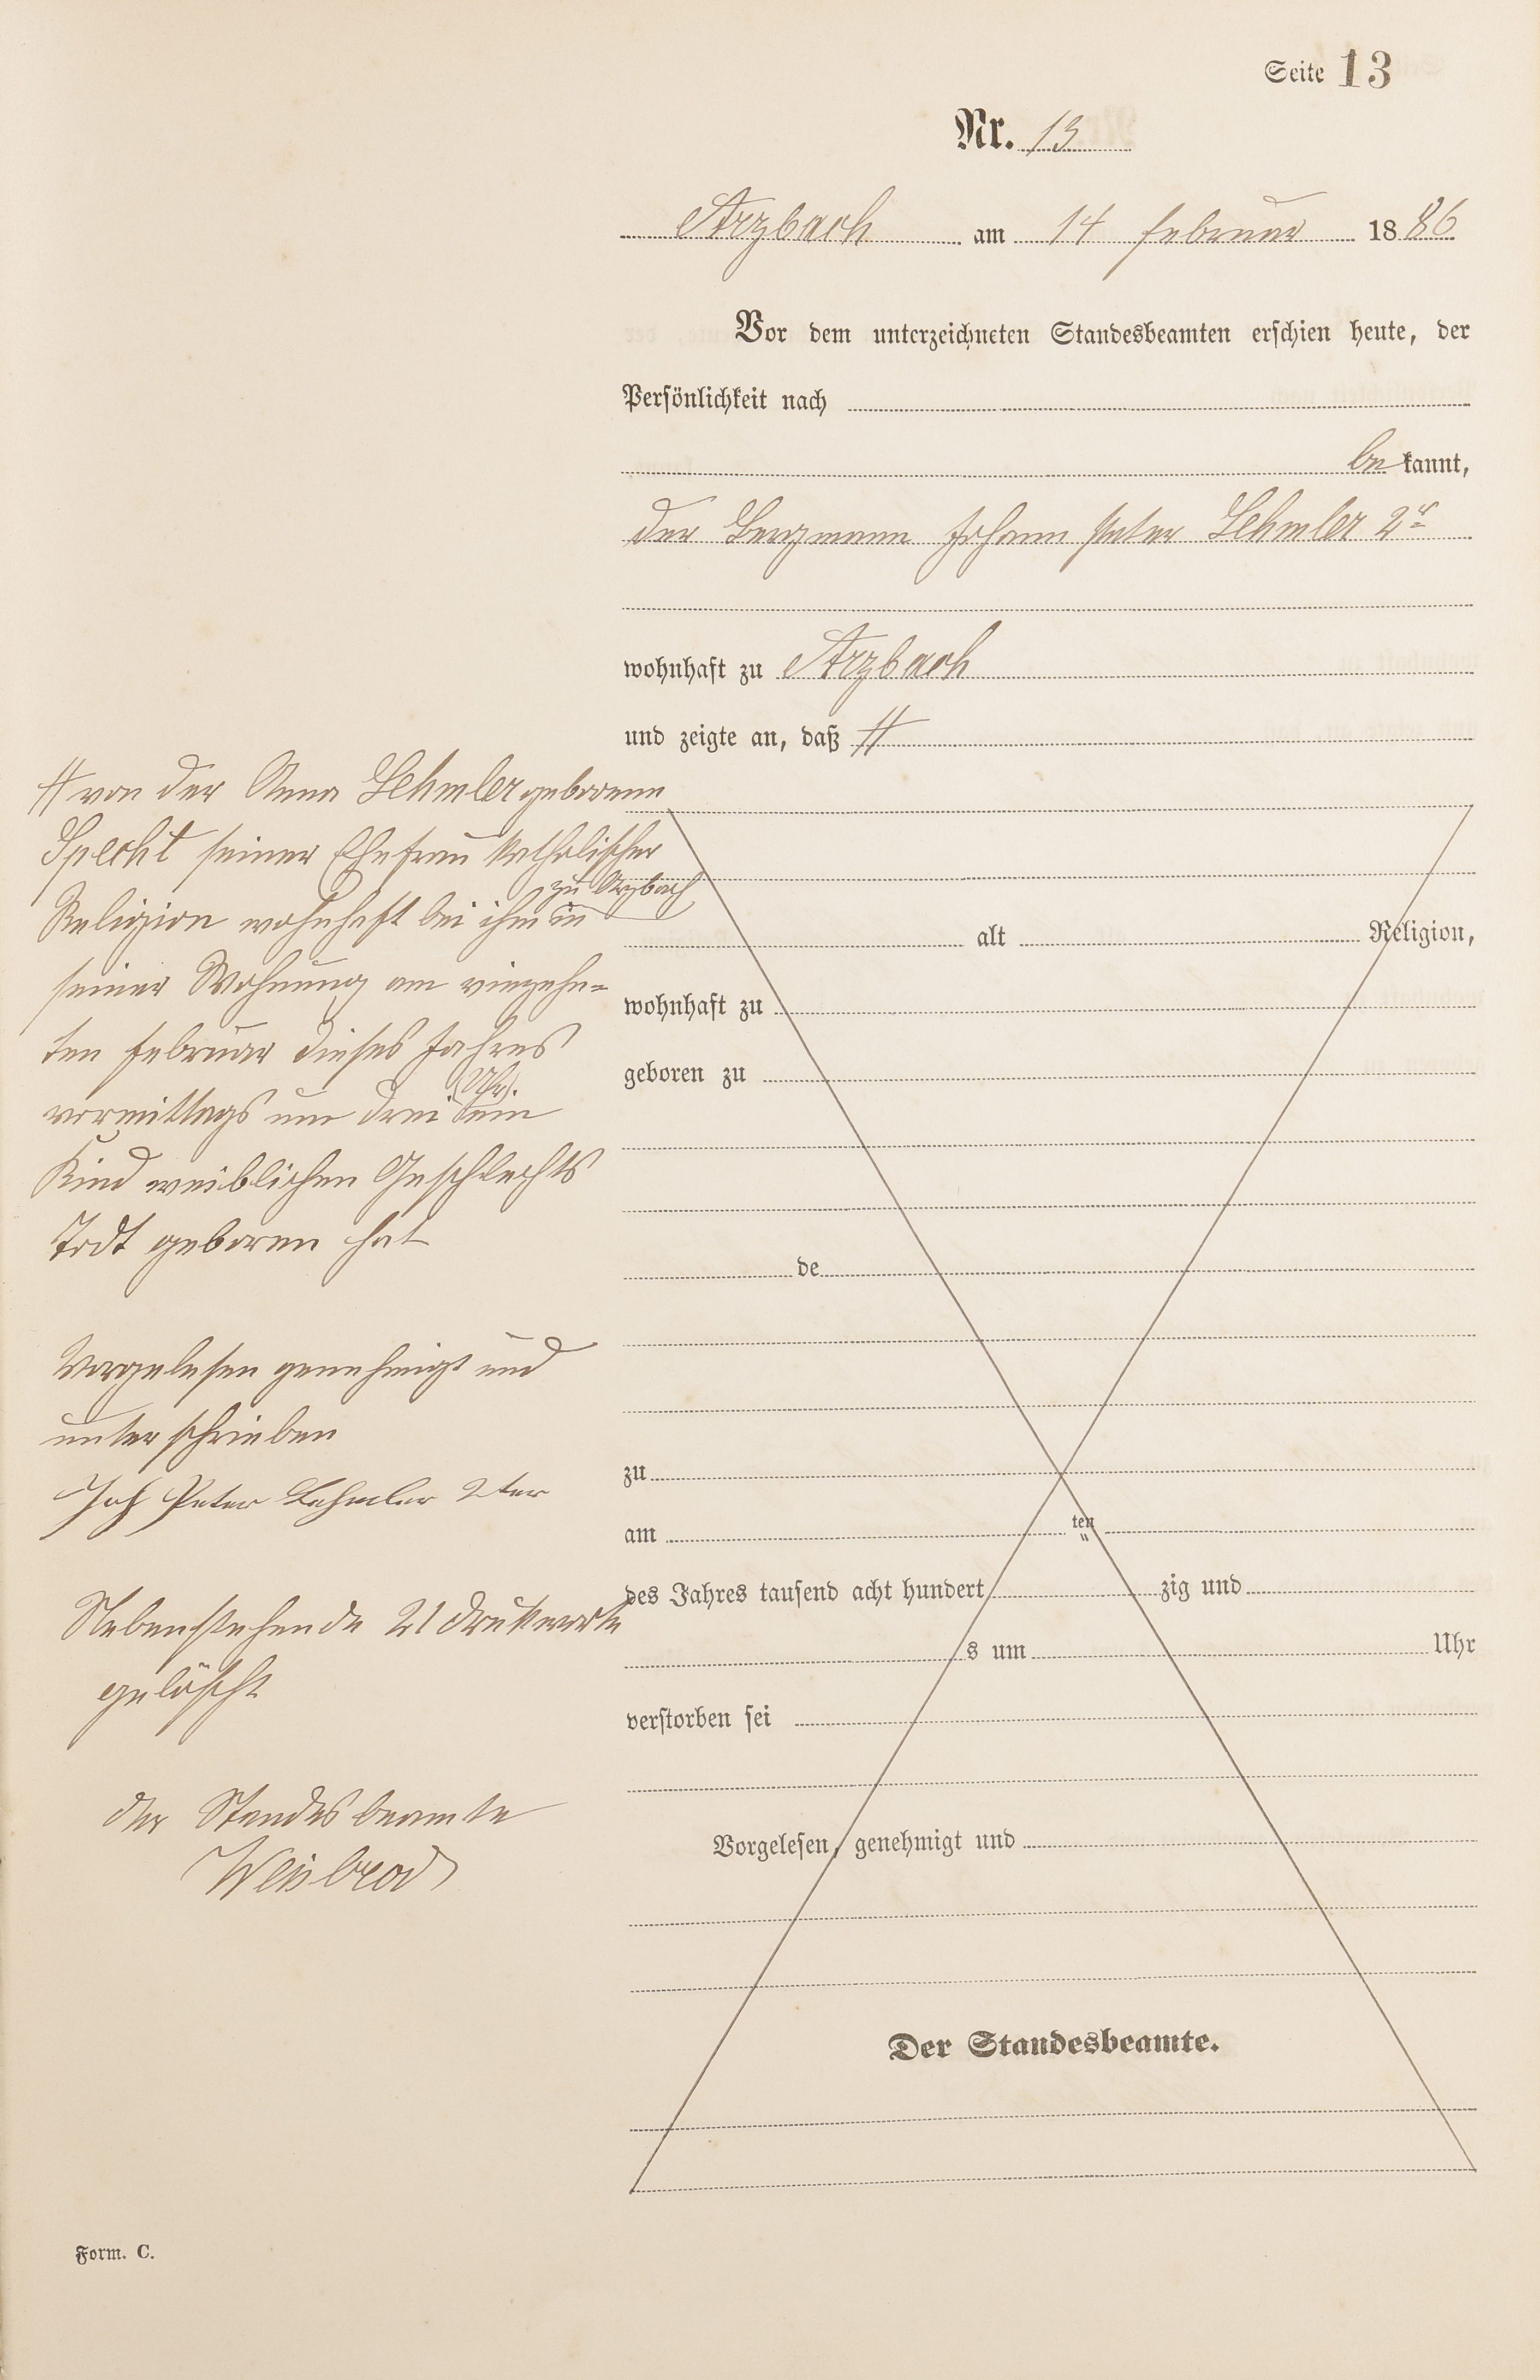 Seite 13
Nr. 13
Arzbach am 14 Februar 1886
Vor dem unterzeichneten Standesbeamten erschien heute, der
Persönlichkeit nach
bekannt,
der Bergmann Johann Peter Lehmler 2r
wohnhaft zu Arzbach
und zeigte an, daß //
// von der Anna Lehmler geborene
Specht seiner Ehefrau katholischer
Religion wohnhaft bei ihm zu Arzbach in
seiner Wohnung am vierzehn=
ten Februar dieses Jahres
vormittags um drei (Uhr). ein
Kind weiblichen Geschlechts
Todt geboren hat
Vorgelesen genehmigt und
unterschrieben
Joh Peter Lehmler 2ter
Nebenstehende 21 Druckworte
gelöscht
Der Standesbeamte
Weisbrod
alt Religion,
wohnhaft zu
geboren zu
de
zu
am ten
des Jahres tausend acht hundert zig und
s um Uhr
verstorben sei
Vorgelesen, genehmigt und
Der Standesbeamte.
Form. C.